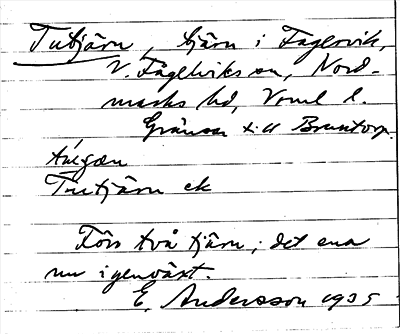 Tutjärn, tjärn i Fagervik,
V. Fågelviks sn, Nord-
marks hd, Vrml l.
Gränsar till Bruntorp.
Tutjärn ek
Förr två tjärn, det ena
nu igenväxt.
E. Andersson 1935